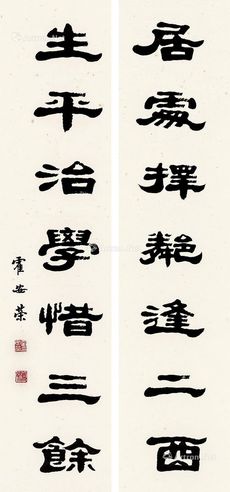 居處擇鄰逢二酉
生平治學惜三餘
霍安榮